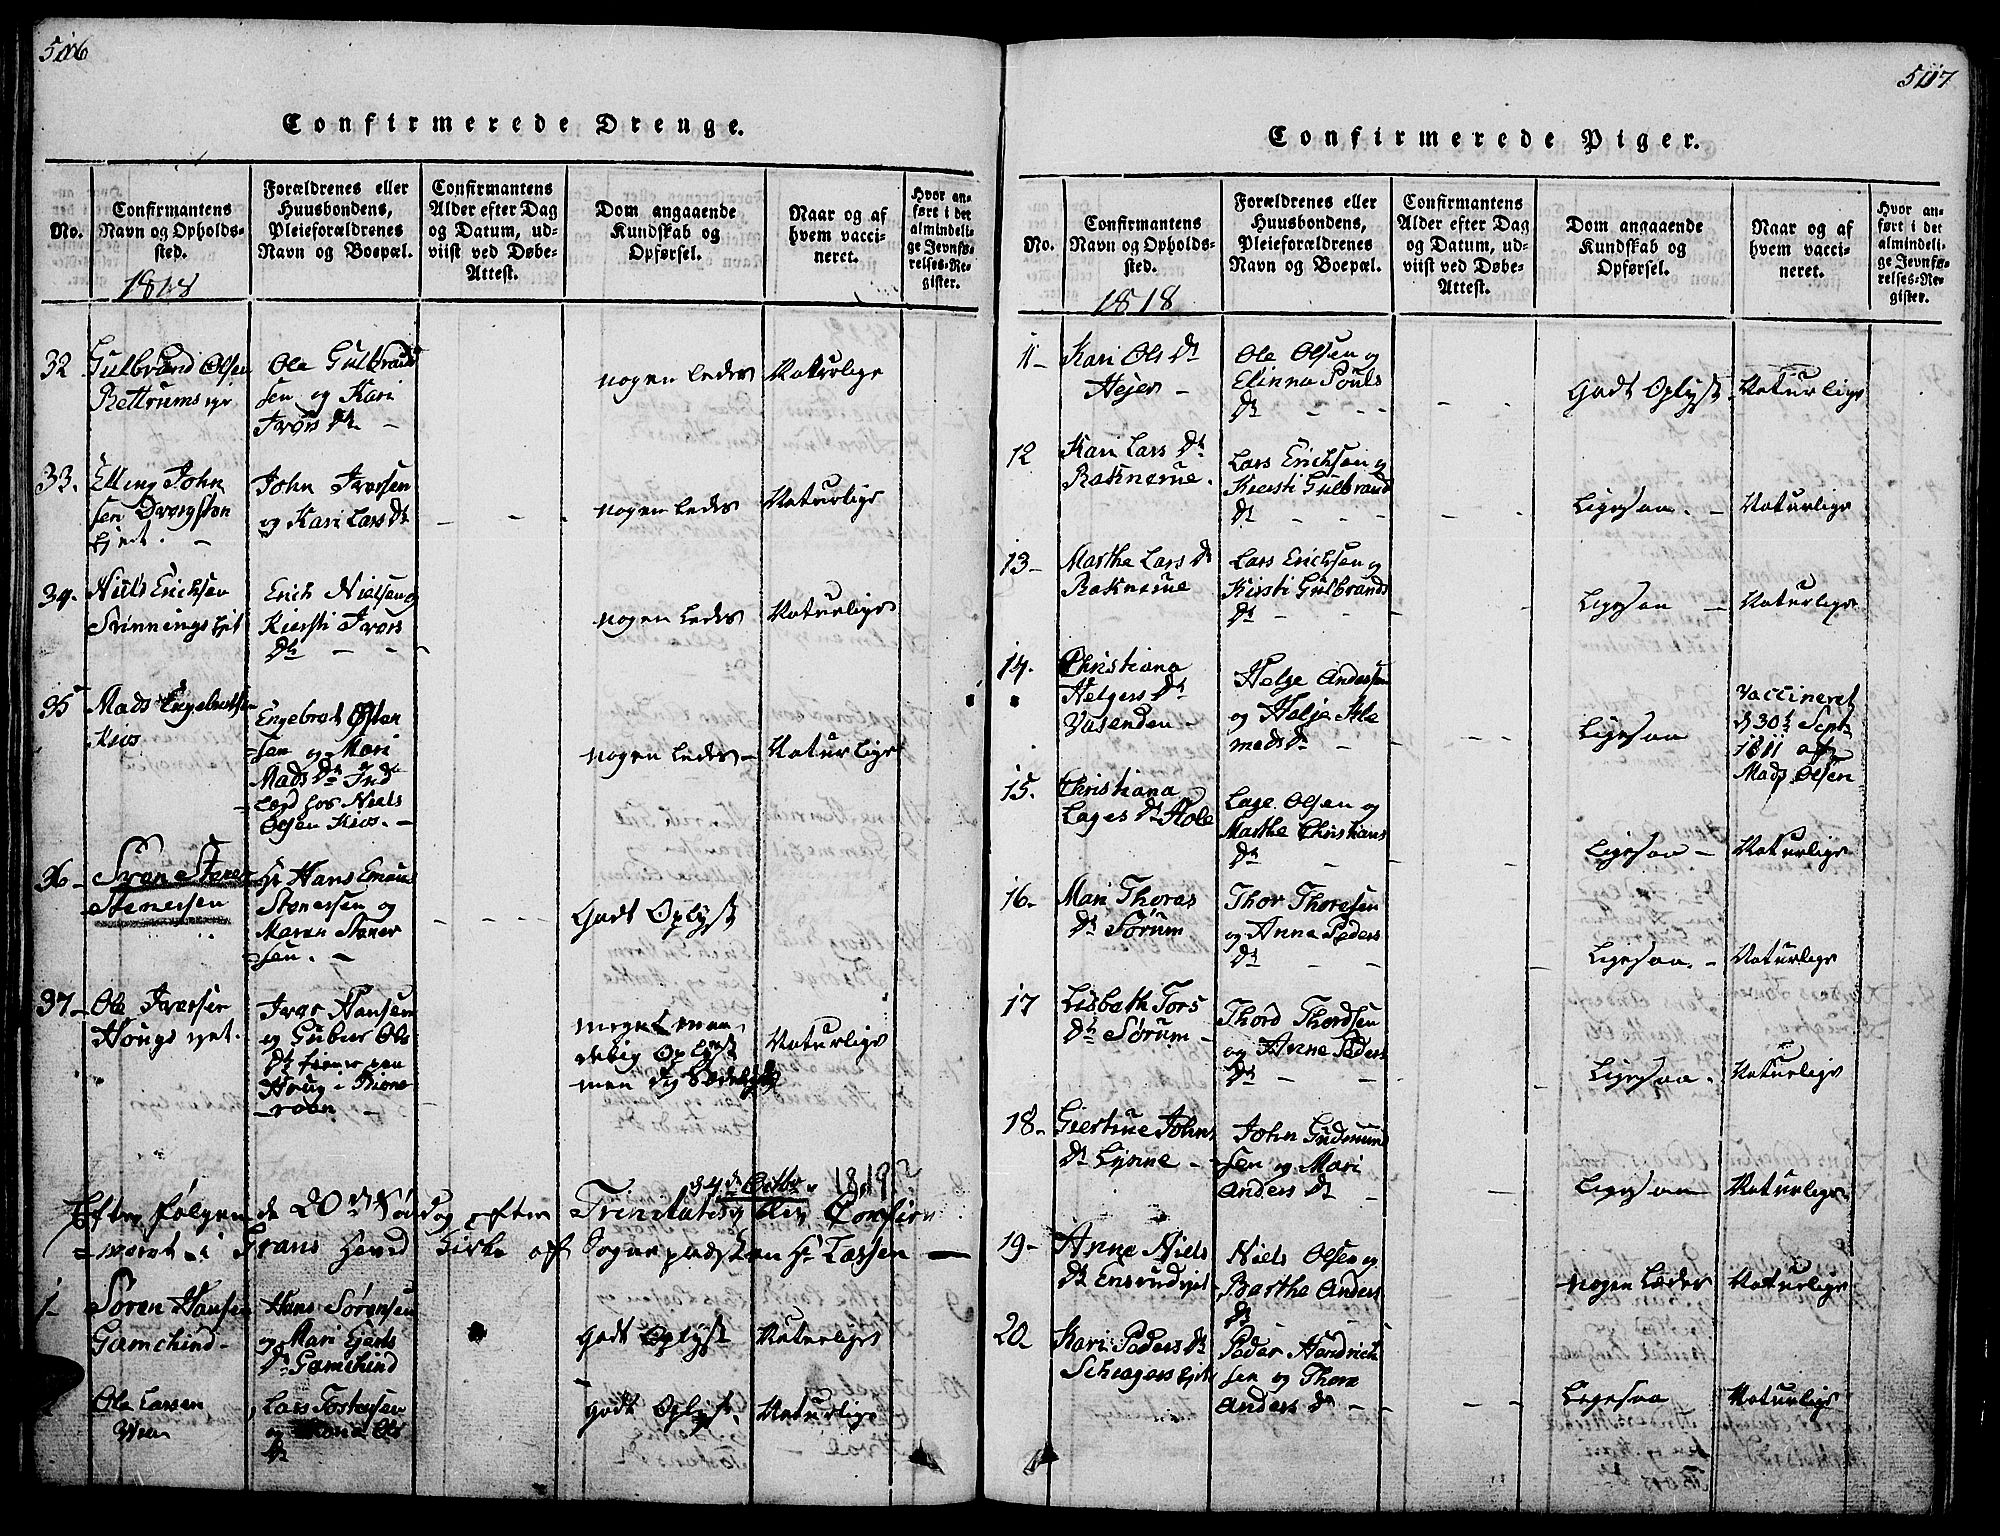 506
Confirmerede Drenge.
No.
Confirmantens
Navn og Opholds-
sted.
Forældrenes eller
Huusbondens,
Pleieforældrenes
Navn og Boepæl.
Confirmantens
Alder efter Dag
og Datum, ud-
viist ved Døbe-
Attest.
Dom angaaende
Kundskab og
Opførsel.
Naar og af
hvem vacci-
neret.
Hvor an-
ført i det
almindeli-
ge Jevnfø-
relses-Re-
gister.
1818
32
Gulbrand Olsen
Ole Gulbrand
sen og Kari
Ivars Dr. -
nogen ledes
Naturlige
33.
Elling John
sen
John Iversen
og Kari Lars Dr
nogen ledes
Naturlige
34.
Niels Erichsen
Erich Nielsen og
Kiersti Ivers
Dr - -
nogen ledes
Naturlige
35
Mads Engebretsen
Kios
Engebret Østen
sen og Mari
Mads Dr Ind
Lærd hos Niels
Olsen Kios. -
nogen ledes -
Naturlige
36 -
Stenersen
Hr Hans Eman
Stenersen og
Maren Stener
sen. -
Godt Oplyst
37 -
Ole Iversen
Iver Hansen
og Gubiør Ols
Dr
Houg i
meget maa
delig Oplyst
men
Naturlige
24de Octbr 1819
Efter følgende 20de Søndag efter Trinitatis blev Confir
=meret i Kirke af Sognepræsten Hr Lassen -
1 -
Søren Hansen
Gamchind -
Hans Sørensen
og Mari
Dr Gamchind
godt Oplyst
Naturliges
Ole Larsen
Lars Tostensen
og Ols
Dr
godt Oplyst.
Naturlige
507
Confirmerede Piger.
No.
Confirmantens
Navn og Opholds-
sted.
Forældrenes eller
Huusbondens,
Pleieforældrenes
Navn og Boepæl.
Confirmantens
Alder efter Dag
og Datum, ud-
viist ved Døbe-
Attest.
Dom angaaende
Kundskab og
Opførsel.
Naar og af
hvem vacci-
neret.
Hvor an-
ført i det
almindeli-
ge Jevnfø-
relses-Re-
gister.
1818
11 -
Kari Ols Dr
Hejer -
Ole Olsen og
Elinna Pouls
Dr - - -
Godt Oplyst
Naturlige
12
Kari Lars Dr
Raknerue.
Lars Erichsen og
Kiersti Gulbrand
Dr - - -
Ligesaa. -
Naturlige
13 -
Marthe Lars Dr
Raknerue
Lars Erichsen og
Kirsti Gulbrands
Dr - -
Ligesaa -
Naturlige
14.
Christiana
Helgers Dr
Vasenden -
Helge Andersen
og Helje Asle
mads Dr -
Ligesaa
Vaccineret
d 30t Sept
1811 af
Mads Olsen
15.
Christiana
Lages Dr Hole
Lage Olsen og
Marthe Christians
Dr -
Ligesaa -
Naturlige
16 -
Mari Thoras
Dr Sørum
Thor Thoresen
og Anne Peders
Dr - -
Ligesaa. -
Naturlige
17
Lisbeth Tors
Dr Sørum -
Thord Thordsen
og Anne Peders
Dr - -
Ligesaa.
Naturlige
18 -
Giertrue Johns
Dr Lynne -
John Gudmund
sen og Mari
Anders Dr -
Ligesaa
Naturlige
19 -
Anne Niels
Dr
Niels Olsen og
Barthe Anders
Dr -
nogen Ledes
Naturlige
20
Kari Peders Dr
Peder Hendrich
sen og Thore
Anders Dr -
Ligesaa -
Naturlige